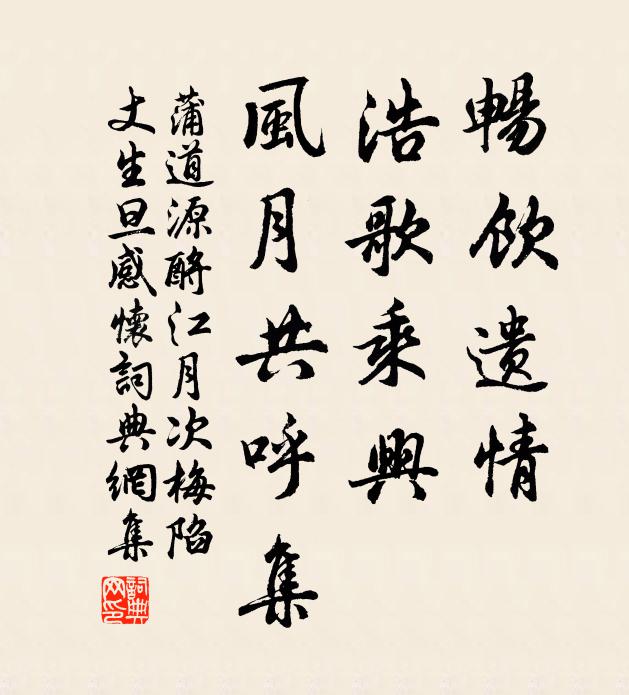 暢飲遺情
浩歌乘興
風月共呼集
蒲道源酹江月次梅陷
丈生旦感懷詞典網集
詞典網印